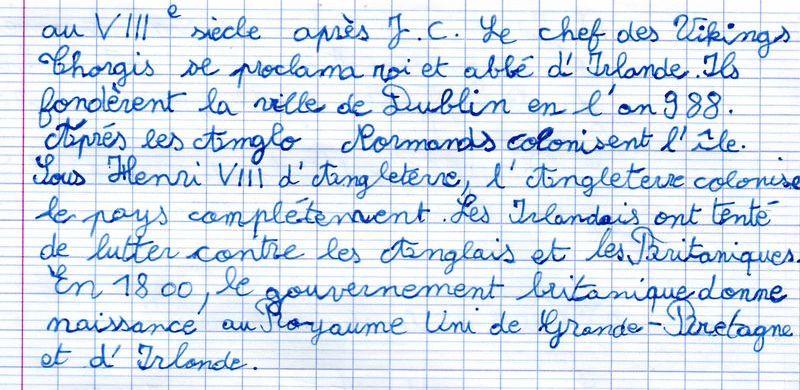 au VIIIe siècle après J.C. Le chef des Vikings
Thorgis se proclama roi et abbé d'Irlande. Ils
fondèrent la ville de Dublin en l'an 988.
Après les Anglo Normands colonisent l'île.
Sous Henri VIII d'Angleterre, l'Angleterre colonise
le pays complétement. Les Irlandais ont tenté
de lutter contre les Anglais et les Britaniques.
En 1800, le gouvernement britanique donne
naissance au Royaume Uni de Grande-Bretagne
et d'Irlande.